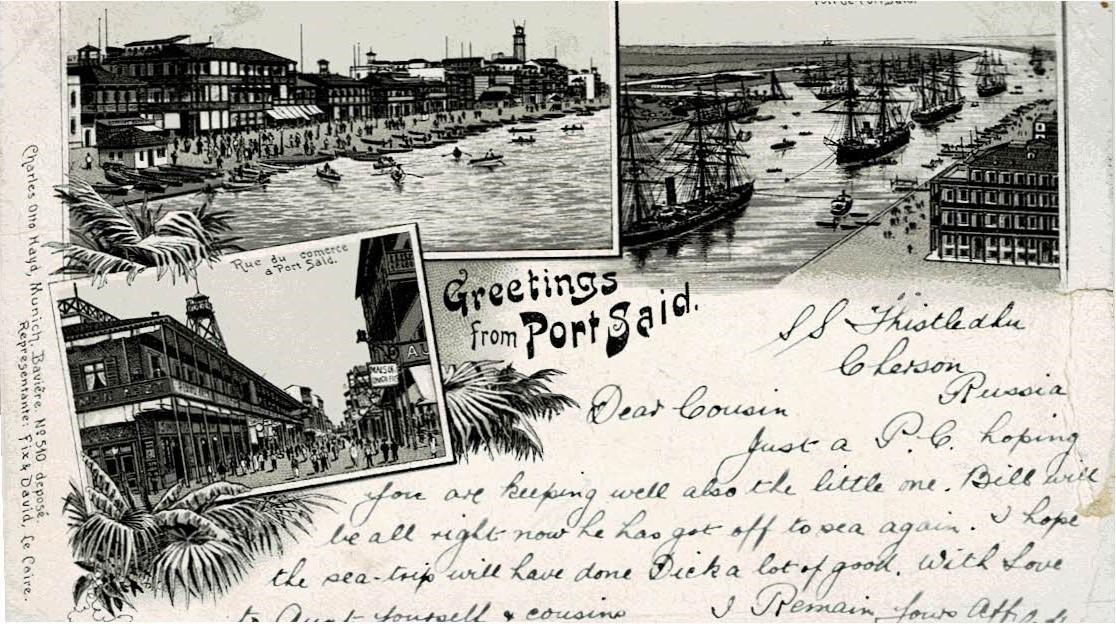 Port de Port Saïd.
Rue du comerce
a Port Saïd.
MAIS DE
Greetings
from Port Said.
Charles Otto Hayd, Munich, Bavière. Nº 510 deposé.
Representante: Fix & David, Le Caire.
S S Thistledhu
Cherson
Russia
Dear Cousin
Just a P.C. hoping
you are keeping well also the little one. Bill will
be all right now he has got off to sea again. I hope
the sea-trip will have done Dick a lot of good. With Love
to Aunt yourself & cousins I Remain Yours Aff